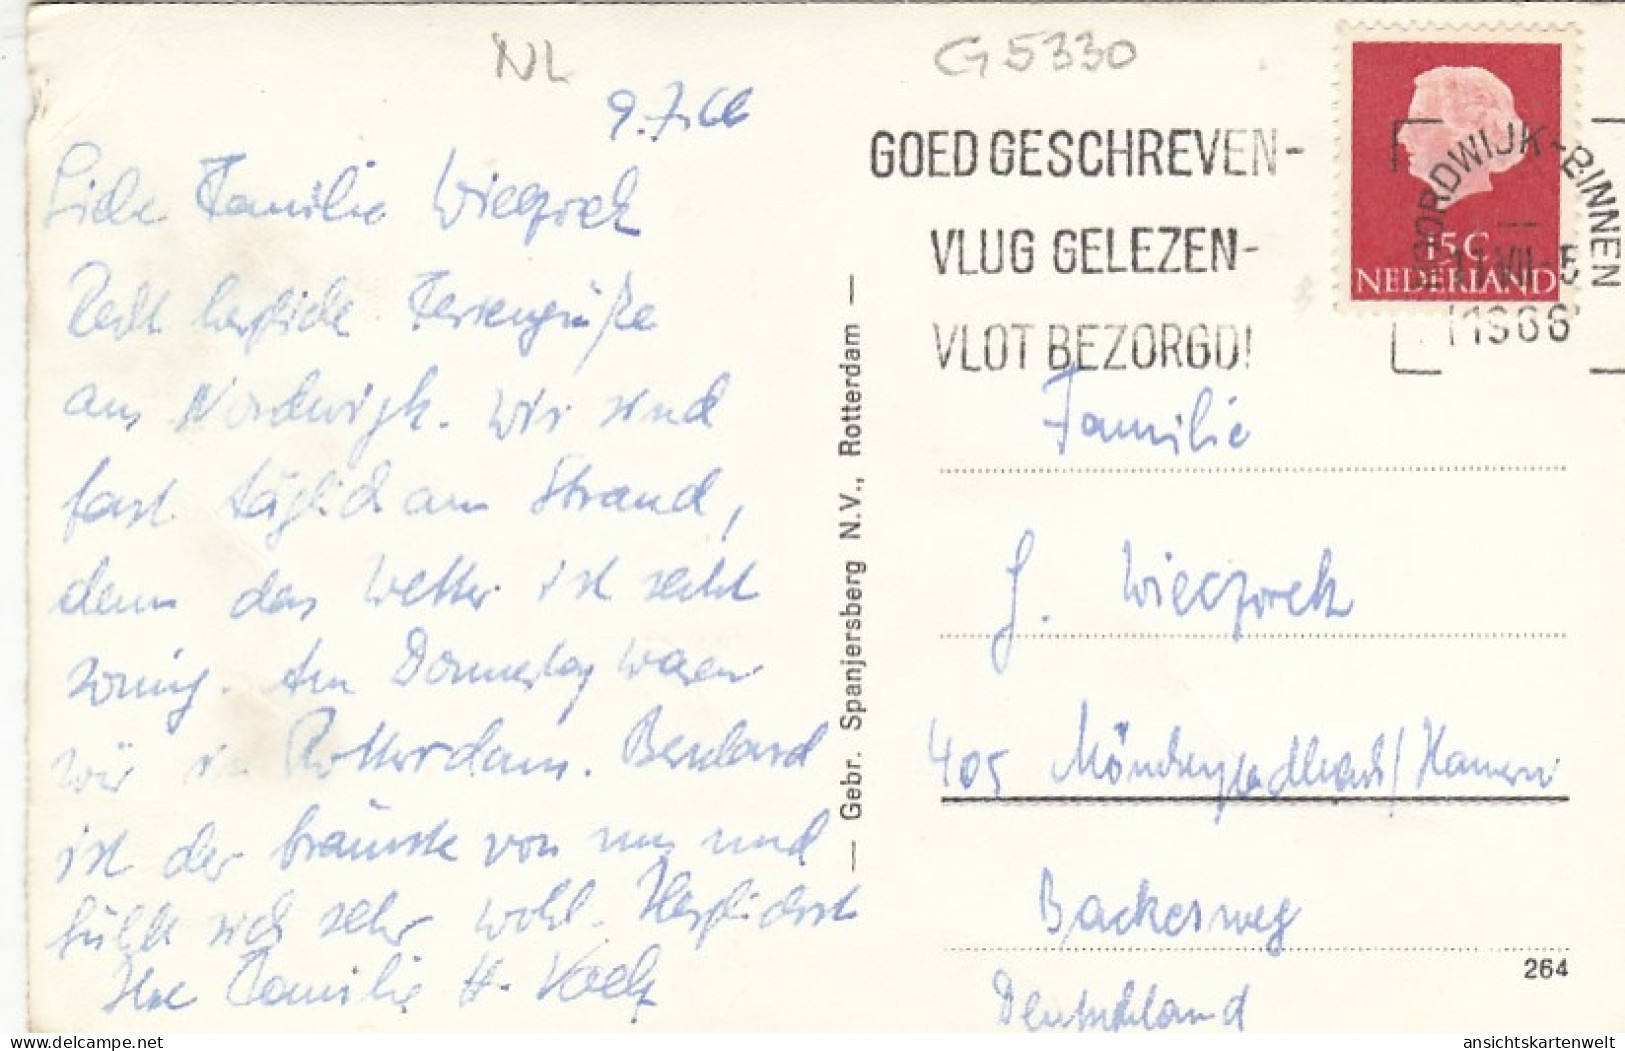 NL
G 5330
9.7.66
Liebe Familie Wieczorek
Recht herzliche Feriengrüße
aus Nordwijk. Wir sind
fast täglich am Strand,
denn das Wetter ist recht
sonnig. Am Donnerstag waren
wir in Rotterdam. Bernhard
ist der bräunste von uns und
fühlt sich sehr wohl. Herzlichst
Ihre Familie H.
— Gebr. Spanjersberg N.V., Rotterdam —
GOED GESCHREVEN-
VLUG GELEZEN-
VLOT BEZORGD!
15 C
NEDERLAND
NOORDWIJK-BINNEN
1966
Familie
J. Wieczorek
405 Mönchengladbach/Hamern
Backesweg
264
Deutschland
ansichtskartenwelt